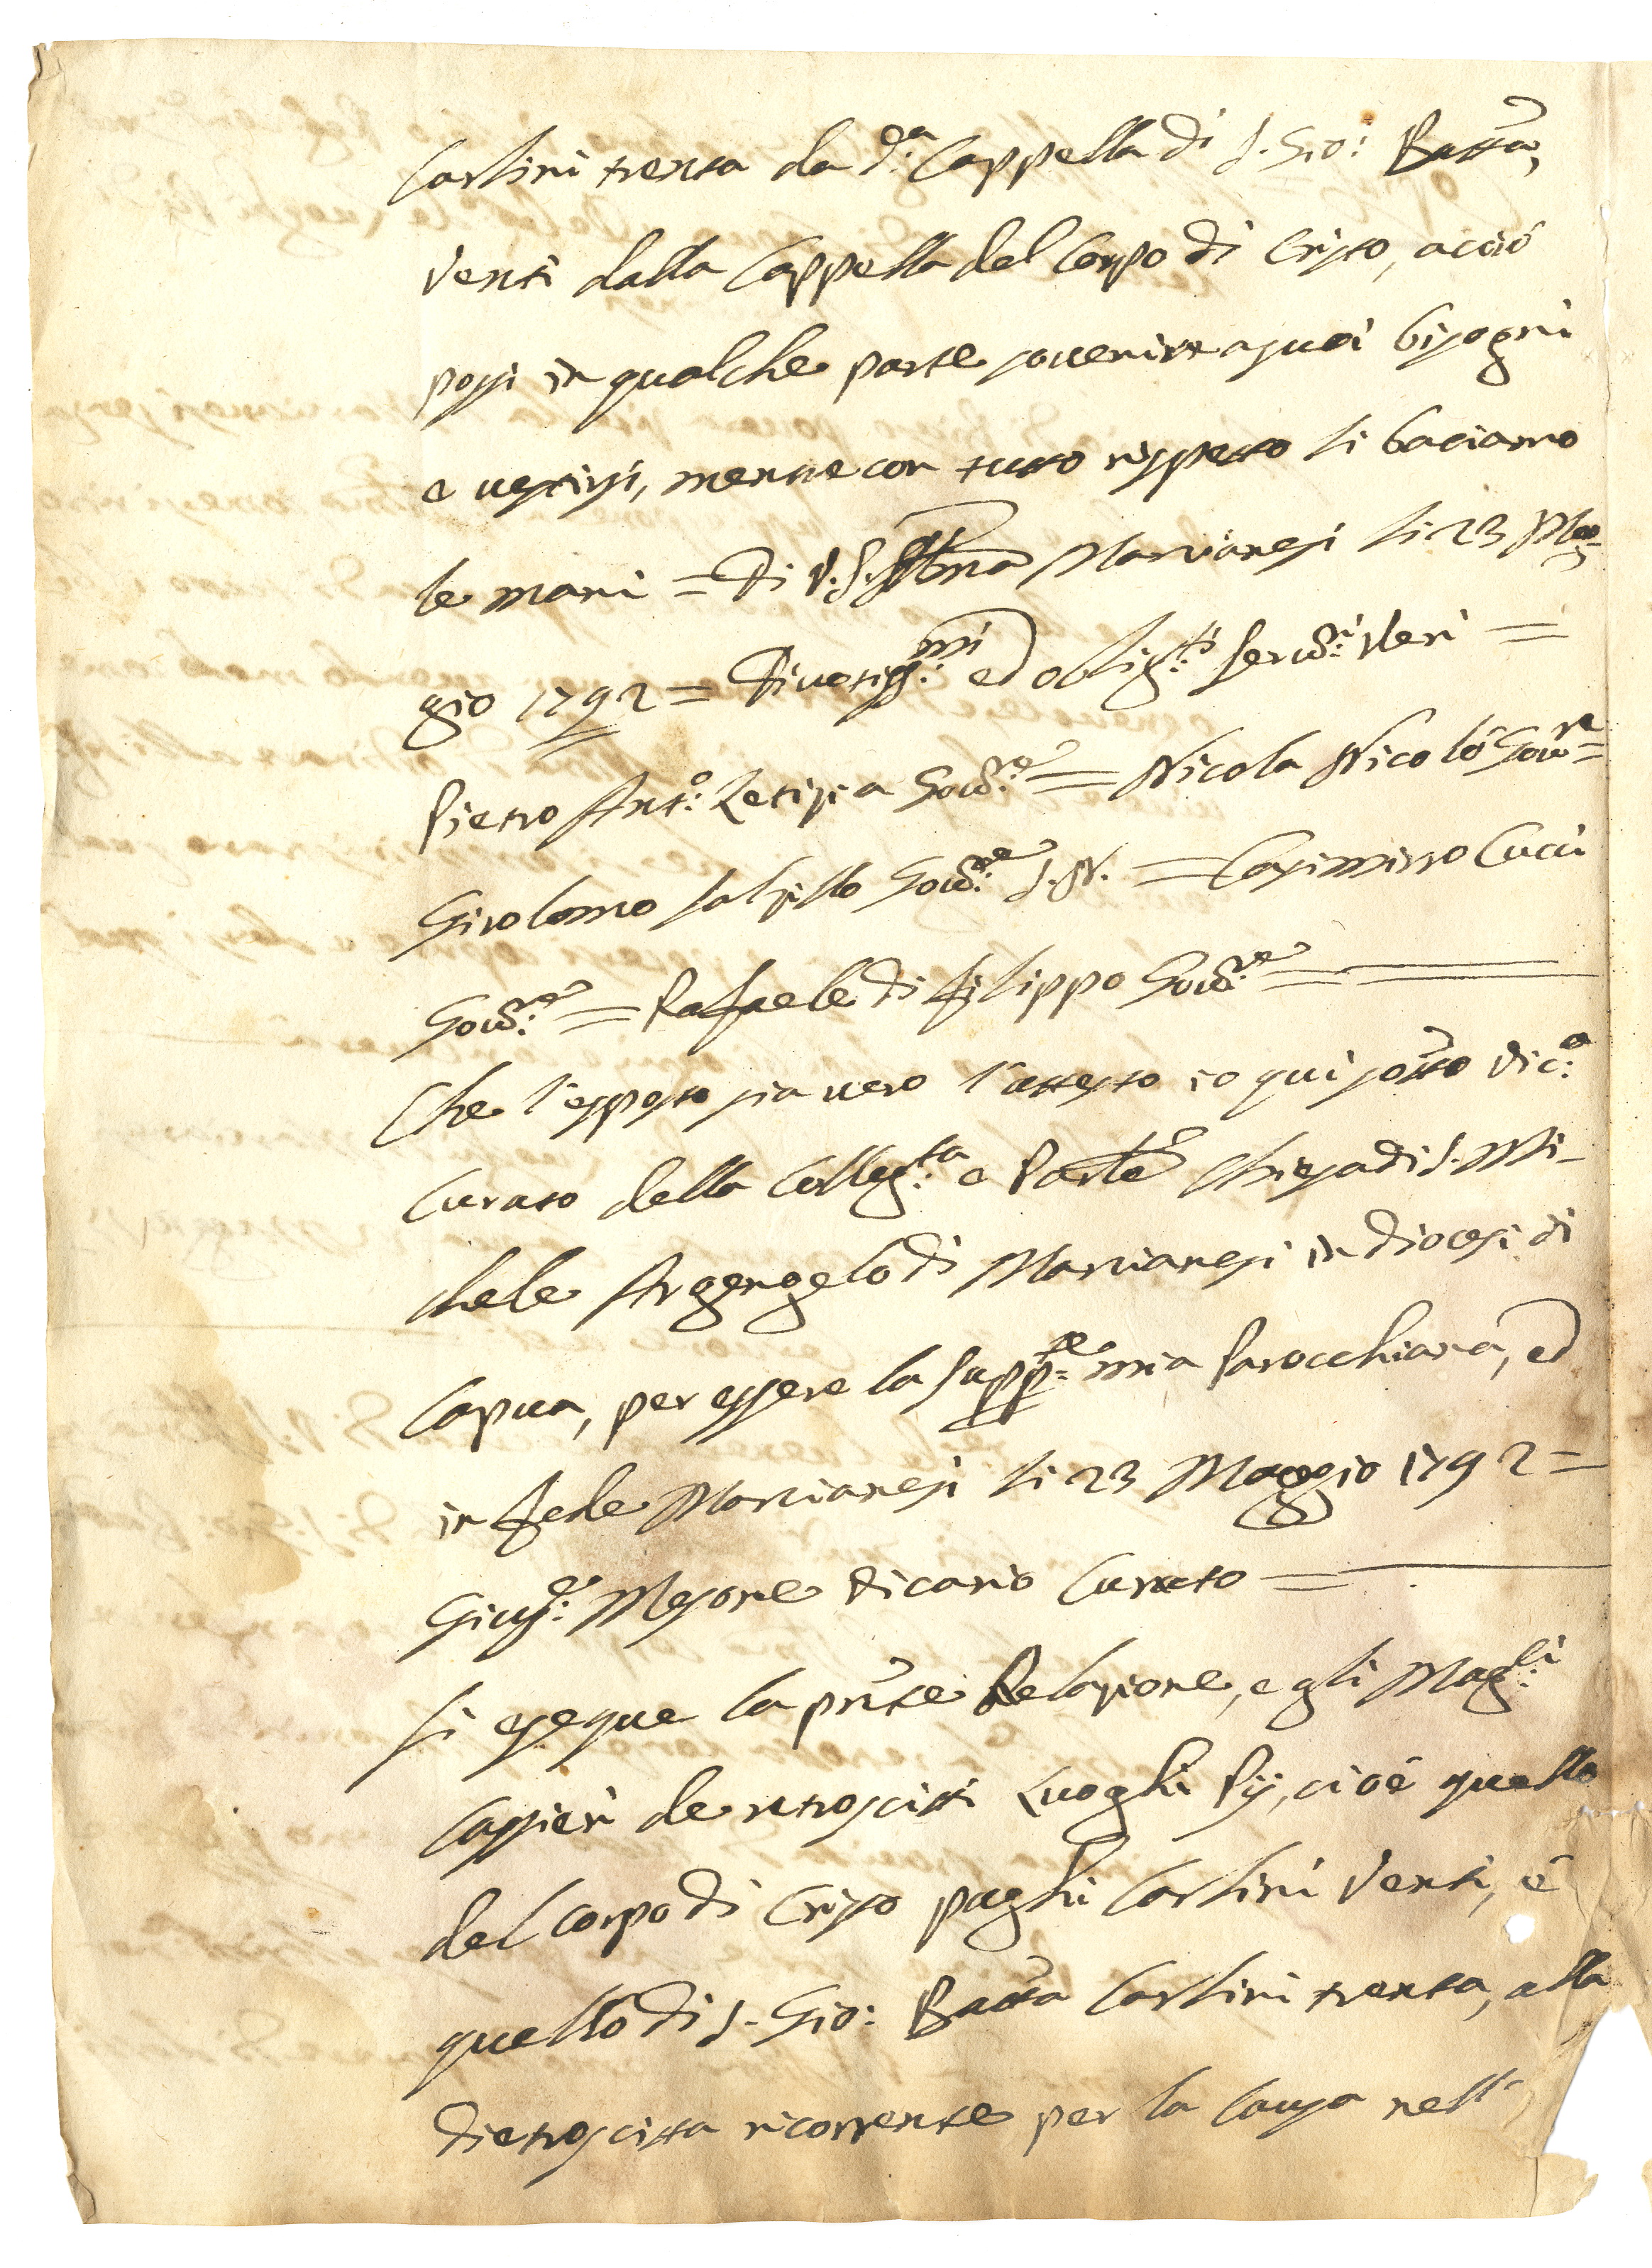 Carlini trenta da d.a Cappella di S. Gio: Batta,
venti dalla Cappella del Corpo di Cristo, acciò
possi in qualche parte sovenire a suoi bisogni
e vestirsi, mentre con tutto rispetto li baciamo
le mani = Di V. S. Illma Marcianesi li 23 Mag-
gio 1792 = Divotiss:mi ed oblig:ti Servd:i Veri =
Pietro Ant:o Letizia Govd:re = Nicola Nicolò Govre =
Girolomo Salzillo Govd:re S. N. = Casimirro Cucci
Govd:re = Rafaele di Filippo Govd:re =
Che l'esposto sia vero l'attesto io qui sotto Vic:o
Curato della Colleg:ta e Parle Chiesa di S. Mi-
chele Argengelo di Marcianesi in Diocesi di
Capua, per essere la Supp:te mia Parocchiana, ed
in fede Marcianesi li 23 Maggio 1792 =
Giusp:e Mesone Vicario Curato =
Si esegue la pnte Relazione, e gli Mag:ci
Cassieri de retroscitti Luoghi Pij, cioè quello
del Corpo di Cristo paghi Carlini Venti, e
quello di S. Gio: Batta Carlini trenta, alla
dietroscitta ricorrente per la Causa nell'